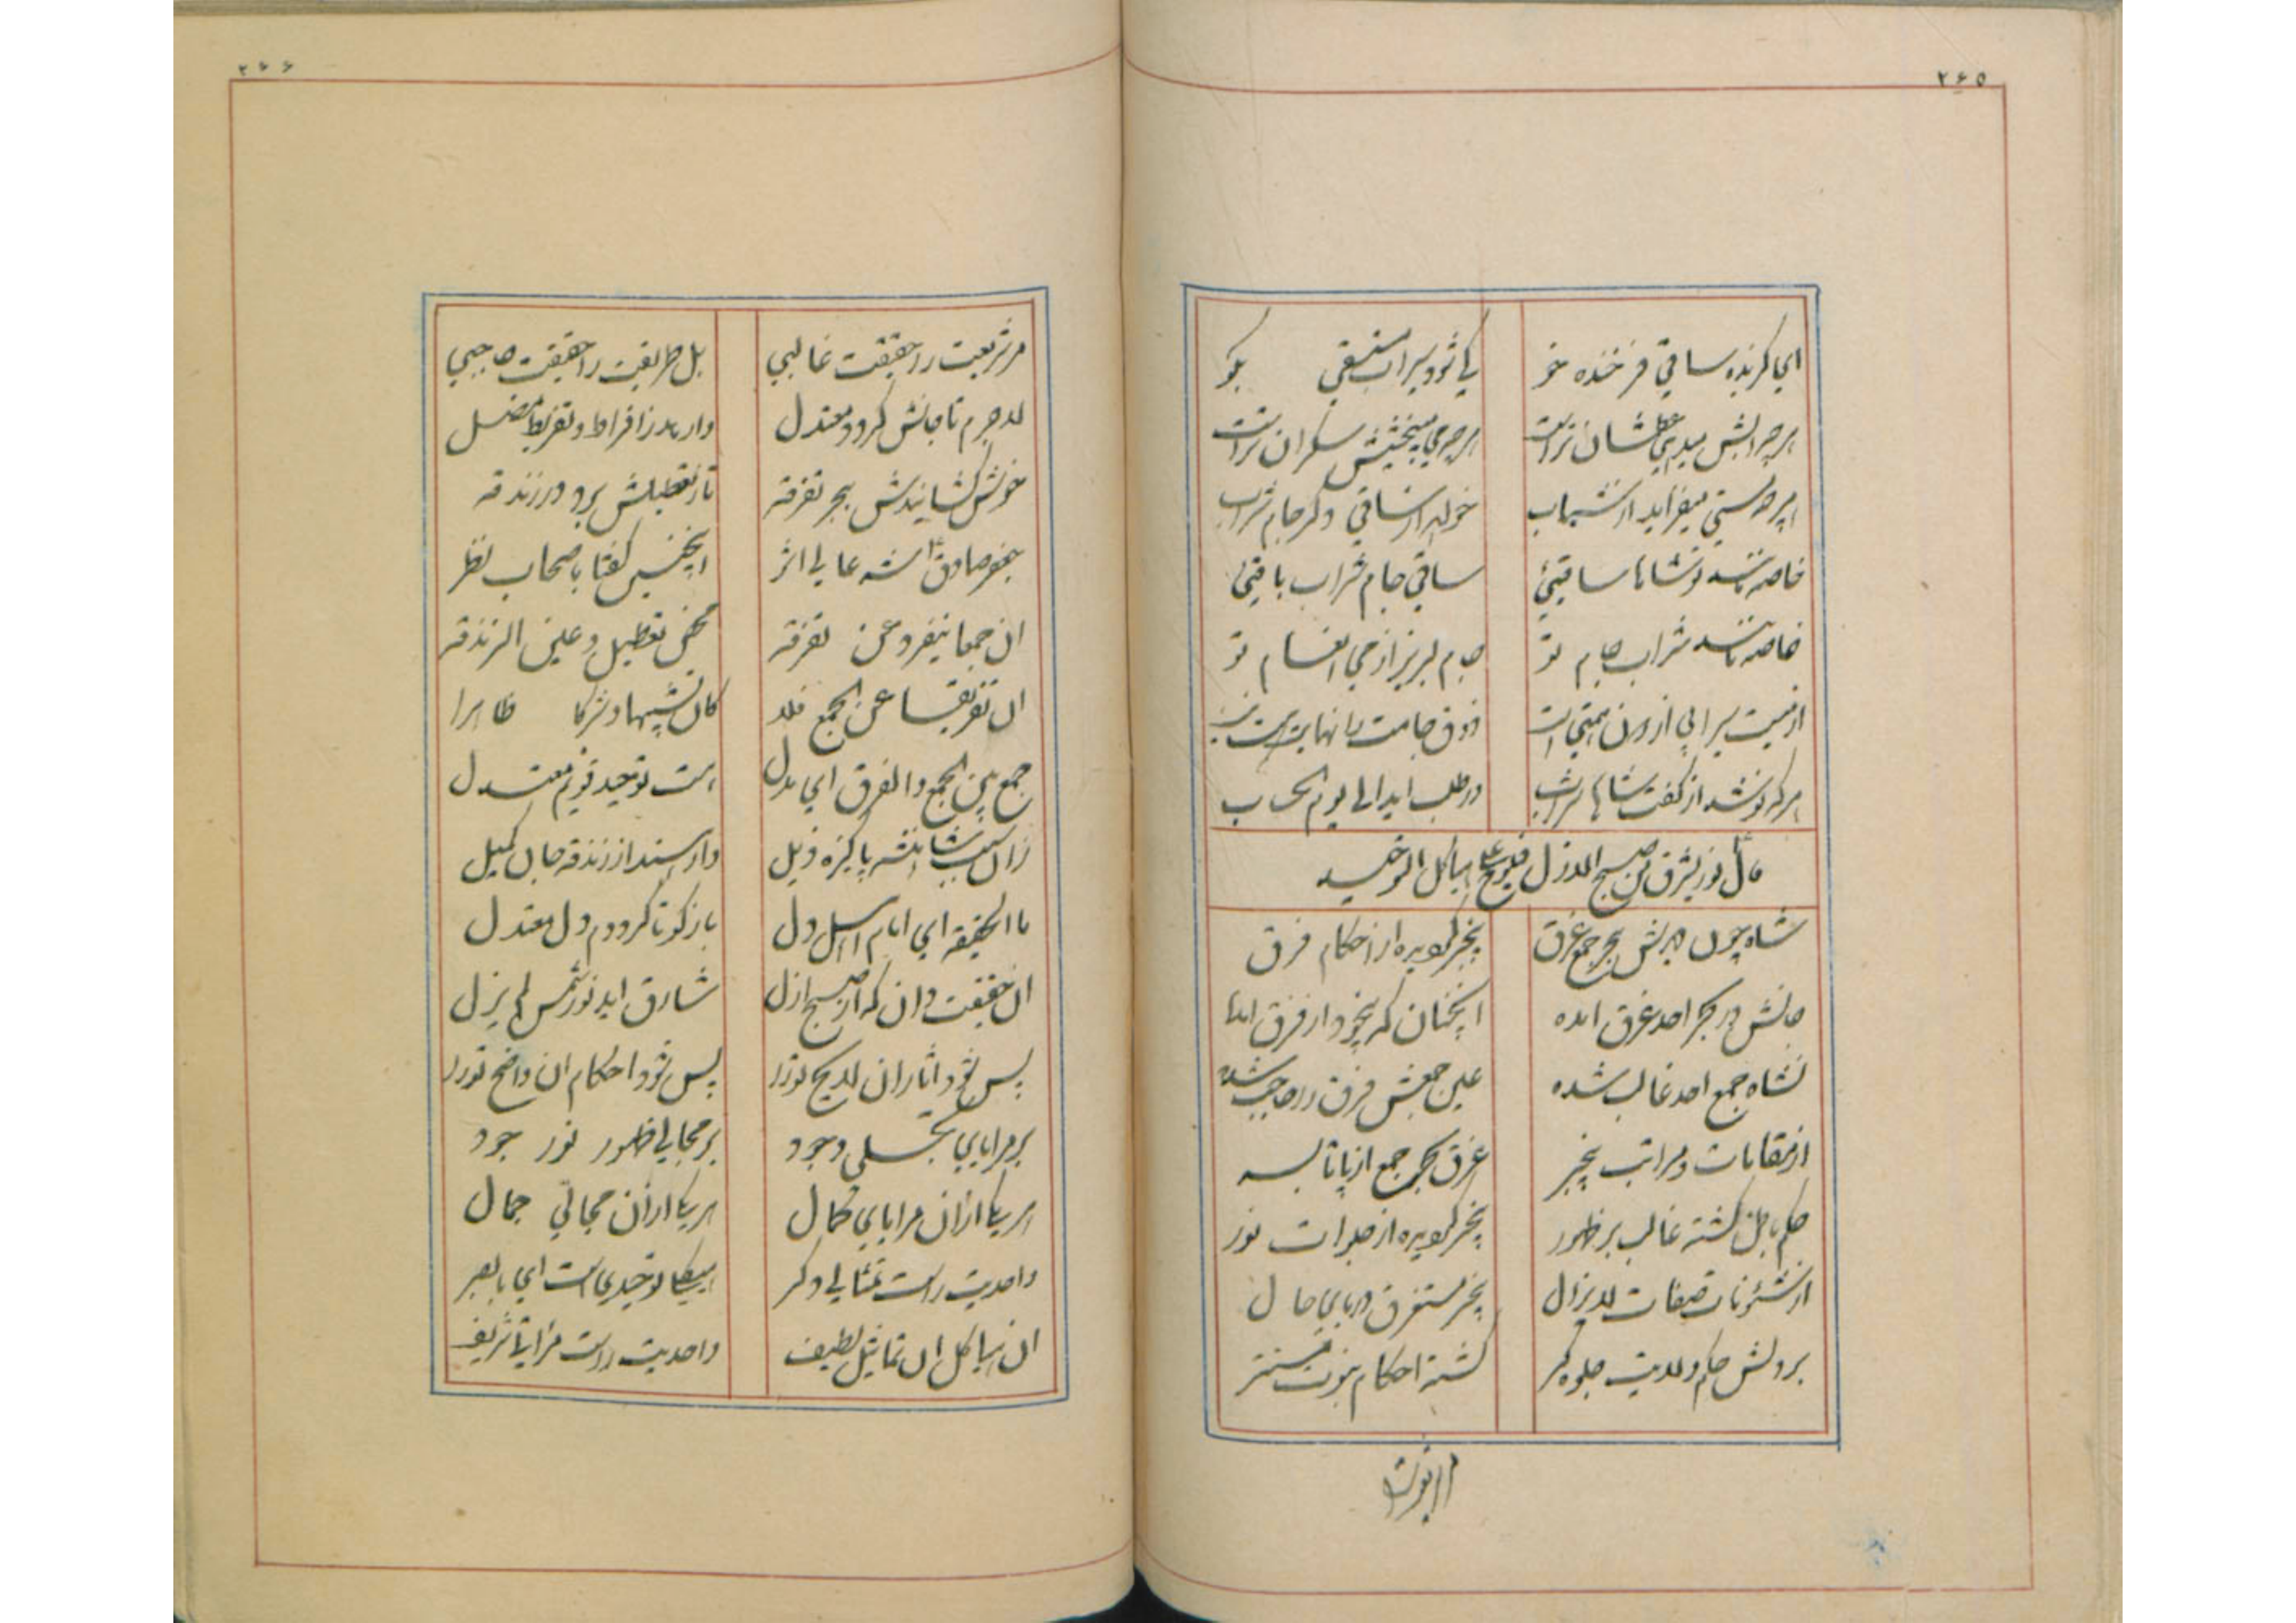 ۲۶۵
ای گزیده ساقی فرخنده خو کی شود سیراب مستسقی بگو
هر چه آبش میدهی عطشان تر است هر چه می میبخشیش سکران تر است
هر چه مستی میفزاید از شراب خواهد از ساقی دگر جام شراب
خاصه باشد تو شاها ساقئی ساقی جام شراب باقئی
خاصه باشد شراب جام تو جام لبریز از می انعام تو
از میت سیرابی از دون همتی است ذوق جامت را نهایت نیست نیست
هر که نوشد از کفت شاها شراب در طلب آید الی یوم الحساب
قال نور یشرق من صبح الازل فیلوح علی هیاکل التوحید
شاه چون دیدش ببحر جمع غرق بیخبر گردیده از احکام فرق
جانش در بحر احد غرق آمده آنچنان کز بیخود از فرق آمده
نشاه جمع احد غالب شده عین جمعش فرق را حاجب شده
از مقامات و مراتب بیخبر غرق بحر جمع از پا تا بسر
حکم باطن گشته غالب بر ظهور بیخبر گردیده از جلوات نور
از شئونات صفات لایزال بیخبر مستغرق دریای حال
بر دلش حکم ولایت جلوه گر گشته احکام نبوت مستتر
۲۶۶
مر شریعت را حقیقت غالبی بل طریقت را حقیقت حاجبی
لاجرم تا جانش گردد معتدل وارهد ز افراط و تفریط مضل
خوش کشانیدش ببحر تفرقه تا ز تعطیلش برد در زندقه
جعفر صادق آن شه عالی اثر اینچنین گفتا باصحاب نظر
ان جمعا ینفرد عن تفرقه محض تعطیل و عین الزندقه
ان تفریقا عن الجمع خلا کان تشبیها و شرکا ظاهرا
جمع بین الجمع و الفرق ای بدل هست توحید قویم معتدل
زان سبب شاهنشه پاکیزه ذیل وارهاند از زندقه جان کمیل
ما الحقیقه ای امام اهل دل بازگو تا گرددم دل معتدل
آن حقیقت دان که از صبح ازل شارق آید نور شمس لم یزل
پس شود آثار آن لایح تو را پس شود احکام آن واضح تو را
بر مرایای تجلی وجود بر مجالی ظهور نور جود
هر یکی از آن مرایای کمال هر یکی از آن مجالی جمال
واحدیت راست تمثالی دگر هیکل توحیدی است ای با بصر
آن هیاکل آن تماثیل لطیف واحدیت راست مرایا شریف